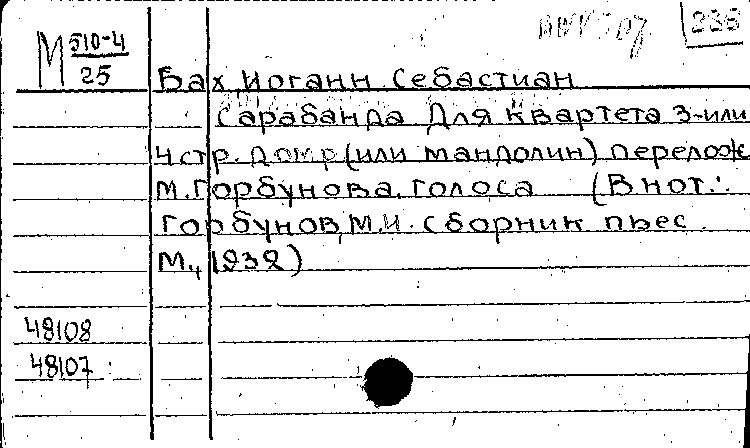 М 510-4
25
236
Бах, Иоганн Себастиан
Сарабанда Для квартета 3-или
4 стр. домр (или мандолин) перелож
М. Горбунова. голоса (В нот.:
Горбунов, М.И. Сборник пьес.
М., 1939)
48108
48107